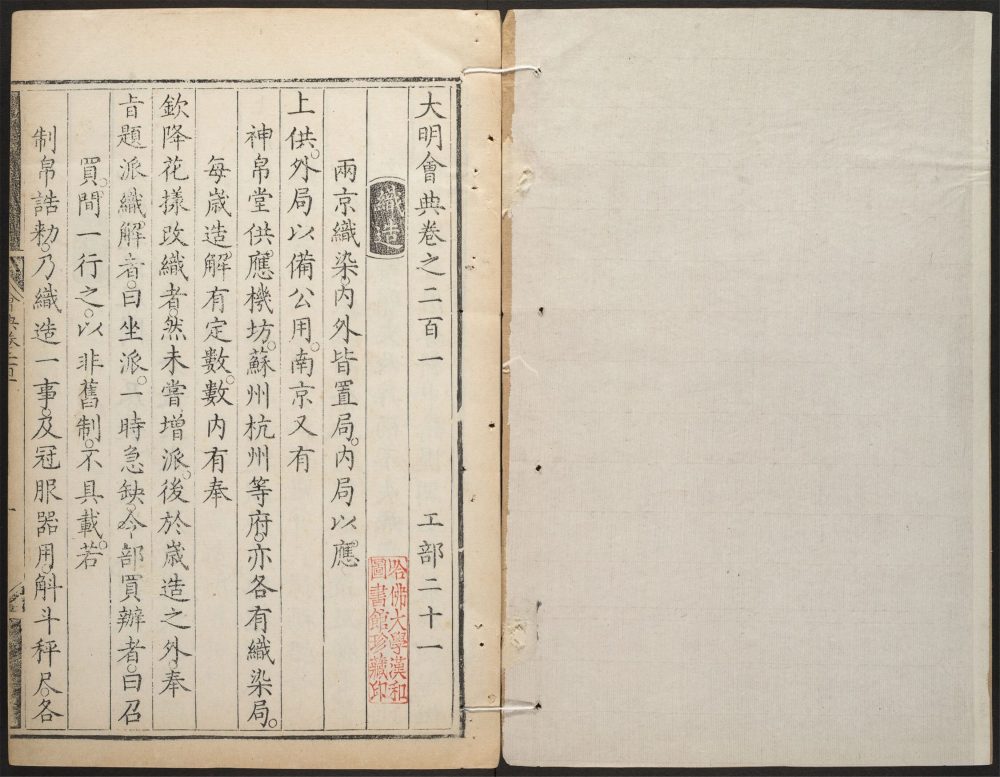 大明會典卷之二百一　工部二十一
織造
哈佛大學漢和
圖書館珍藏印
兩京織染。內外皆置局。內局以應
上供。外局以備公用。南京又有
神帛堂供應機坊。蘇州杭州等府。亦各有織染局。
每歲造解有定數。數內有奉
欽降花樣改織者。然未嘗增派。後於歲造之外。奉
旨題派織解者。曰坐派。一時急缺。令部買辦者。曰召
買。間一行之。以非舊制。不具載。若
制帛誥勑。乃織造一事。及冠服器用。斛斗秤尺。各